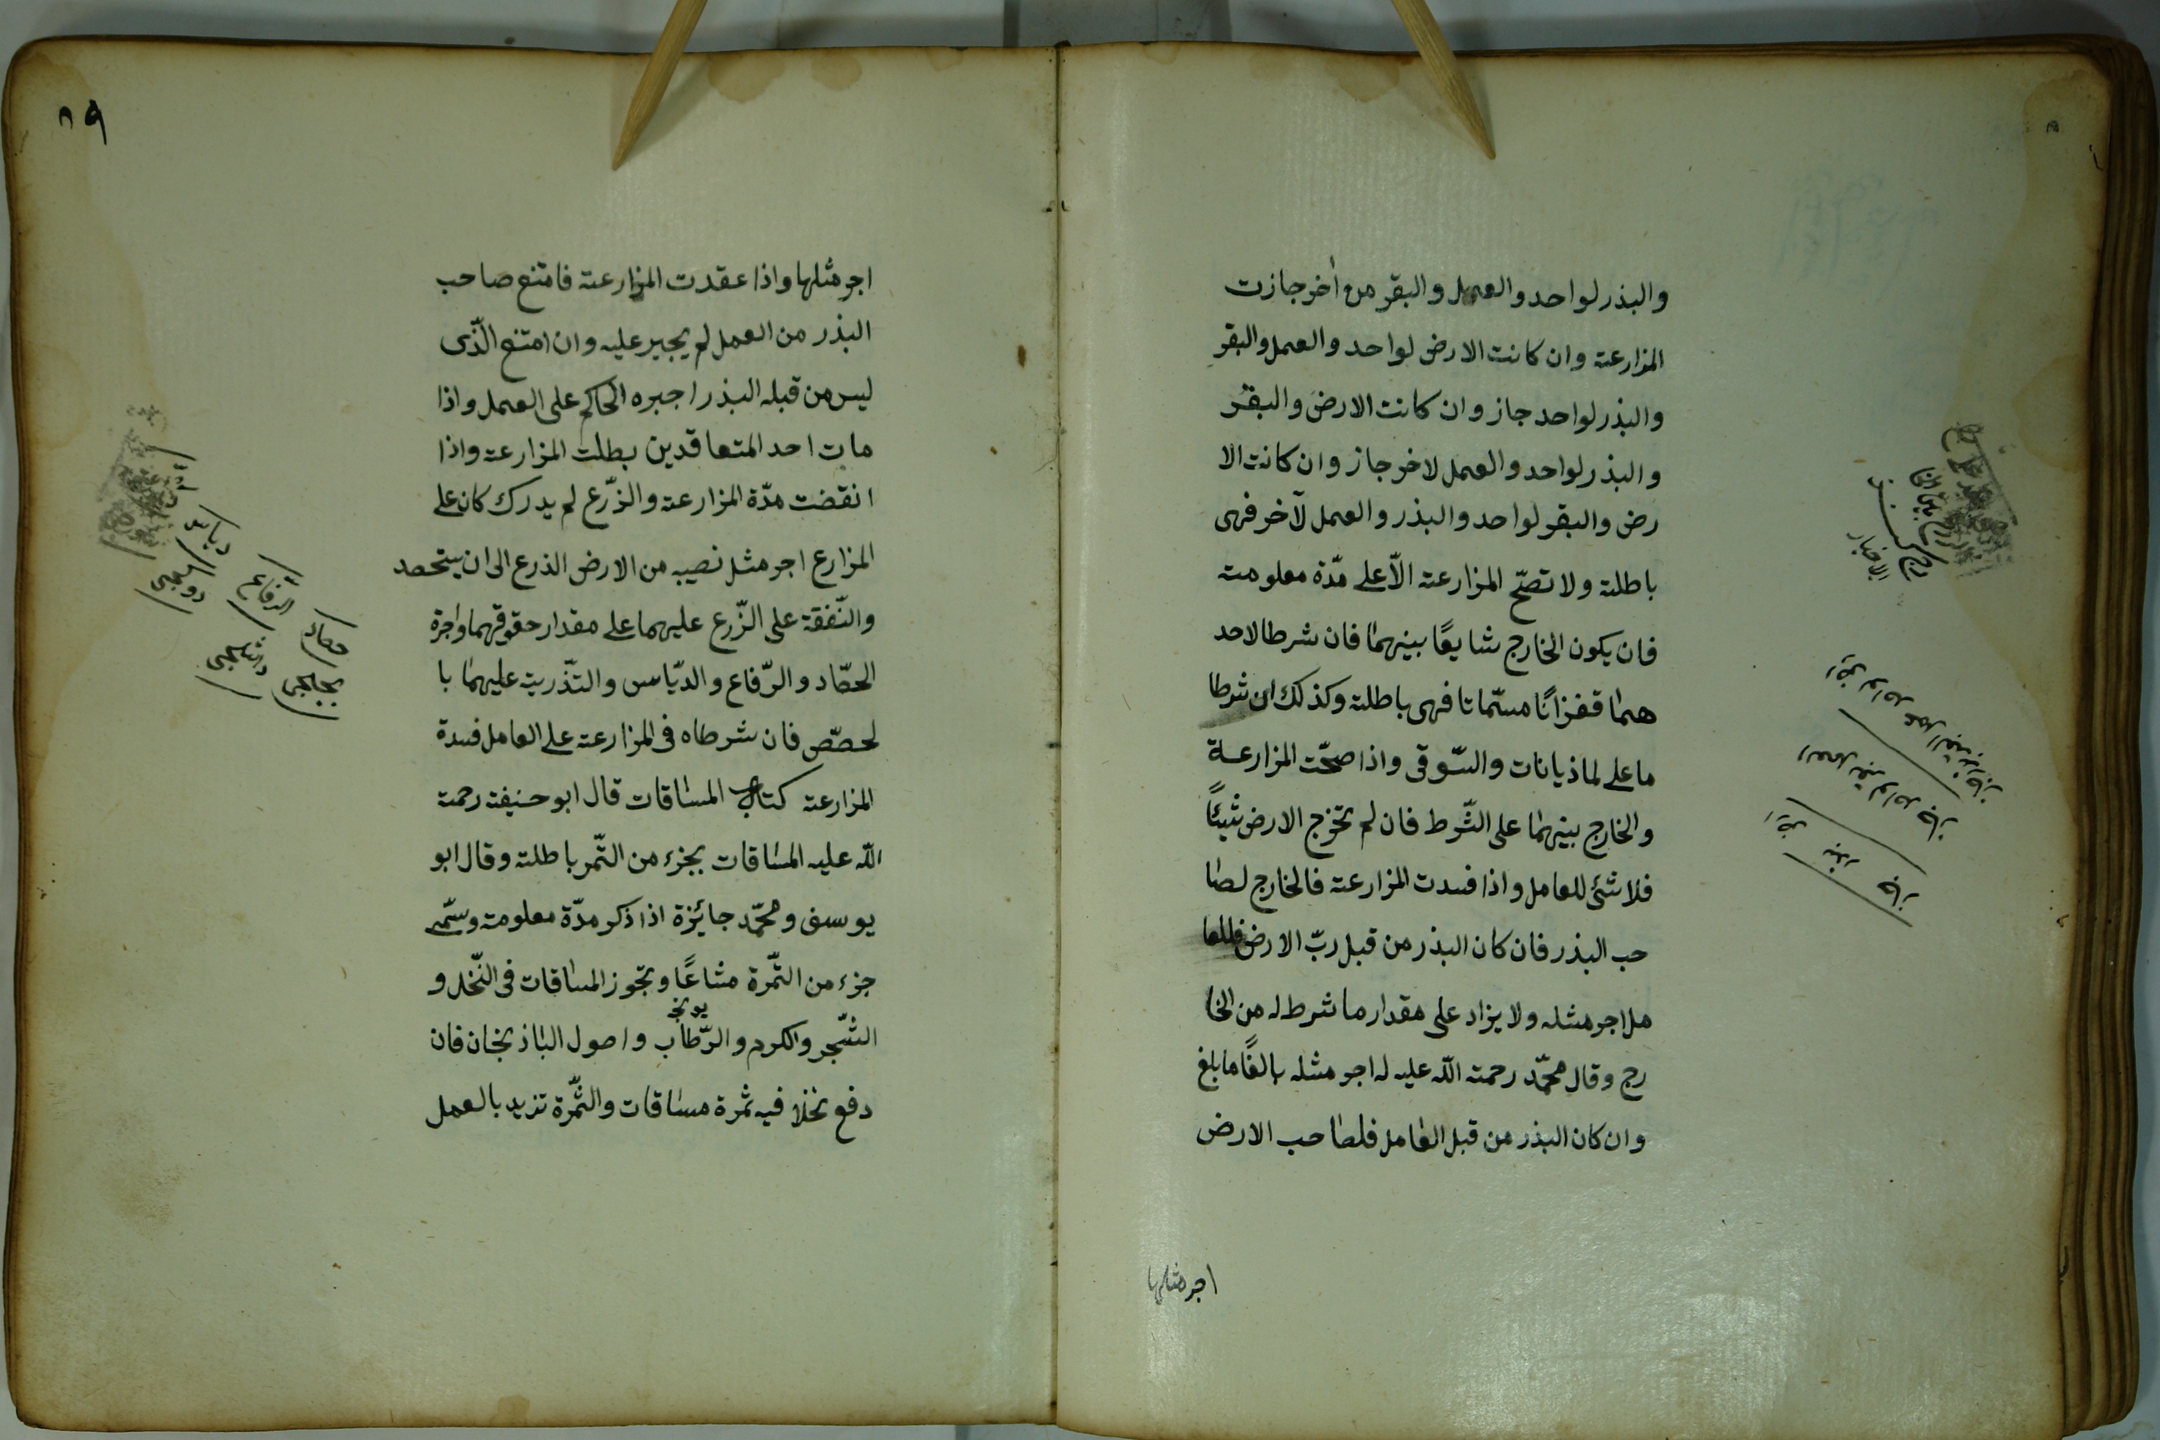 والبذر لواحد والعمل والبقر من أخر جازت
المزارعة وان كانت الارض لواحد والعمل والبقر
والبذر لواحد جاز وان كانت الارض والبقر
والبذر لواحد والعمل لاخر جاز وان كانت الا
رض والبقر لواحد والبذر والعمل لآخر فهى
باطلة ولا تصّح المزارعة الّا على مّدة معلومة
فان يكون الخارج شايعًا بينهما فان شرطا لاحد
هما قفزانًا مسّماتا فهى باطلة وكذلك ان شرطا
ما على لماذيانات والسّوقى واذا صحّت المزارعة
والخارج بينهما على الشّرط فان لم تخرج الارض شيئًا
فلا شئ للعامل واذا فسدت المزارعة فالخارج لصا
حب البذر فان كان البذر من قبل ربّ الارض فللعا
مل اجر مثله ولا يزاد على مقدار ما شرط له من الخا
رج وقال محمّد رحمة اللّه عليه له اجر مثله بالغًا ما بلغ
وان كان البذر من قبل العامل فلصاحب الارض
اجر مثلها
٨٩
اجر مثلها واذا عقدت المزارعة فامتنع صاحب
البذر من العمل لم يجبر عليه وان امتنع الّذى
ليس من قبله البذر اجبره الحاكم على العمل واذا
مات احد المتعاقدين بطلت المزارعة واذا
انقضت مدّة المزارعة والزّرع لم يدرك كان على
المزارع اجر مثل نصيبه من الارض الذرع الى ان يستحصد
والنّفقة على الزّرع عليهما على مقدار حقوقهما واجرة
الحصّاد والرّفاع والديّاس والتذّرية عليهما با
لحصّص فان شرطاه فى المزارعة على العامل فسدة
المزارعة كتاب المساقات قال ابو حنيفة رحمة
اللّه عليه المساقات بجزء من الثّمر باطلة وقال ابو
يوسف ومحمّد جائزة اذا ذكر مدّة معلومة وسّمى
جزء من الثّمرة مشاعًا وتجوز المساقات فى النّخل و
يونجه
الشّجر والكرم والرّطاب واصول الباذنجان فان
دفع نخلا فيه ثمرة مساقات والثّمرة تزيد بالعمل
حصاد
الرّفاع